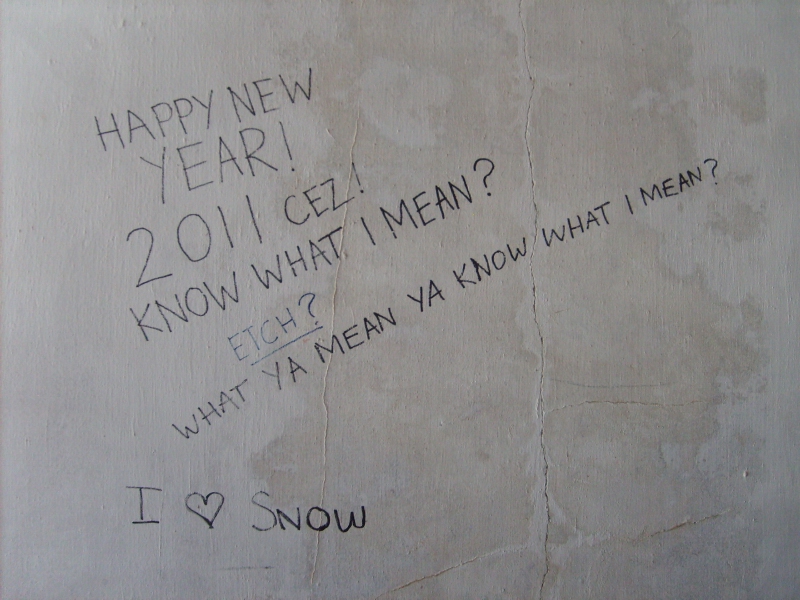 HAPPY NEW
YEAR!
2011 CEZ!
KNOW WHAT I MEAN?
ETCH?
WHAT YA MEAN YA KNOW WHAT I MEAN?
I ♡ SNOW